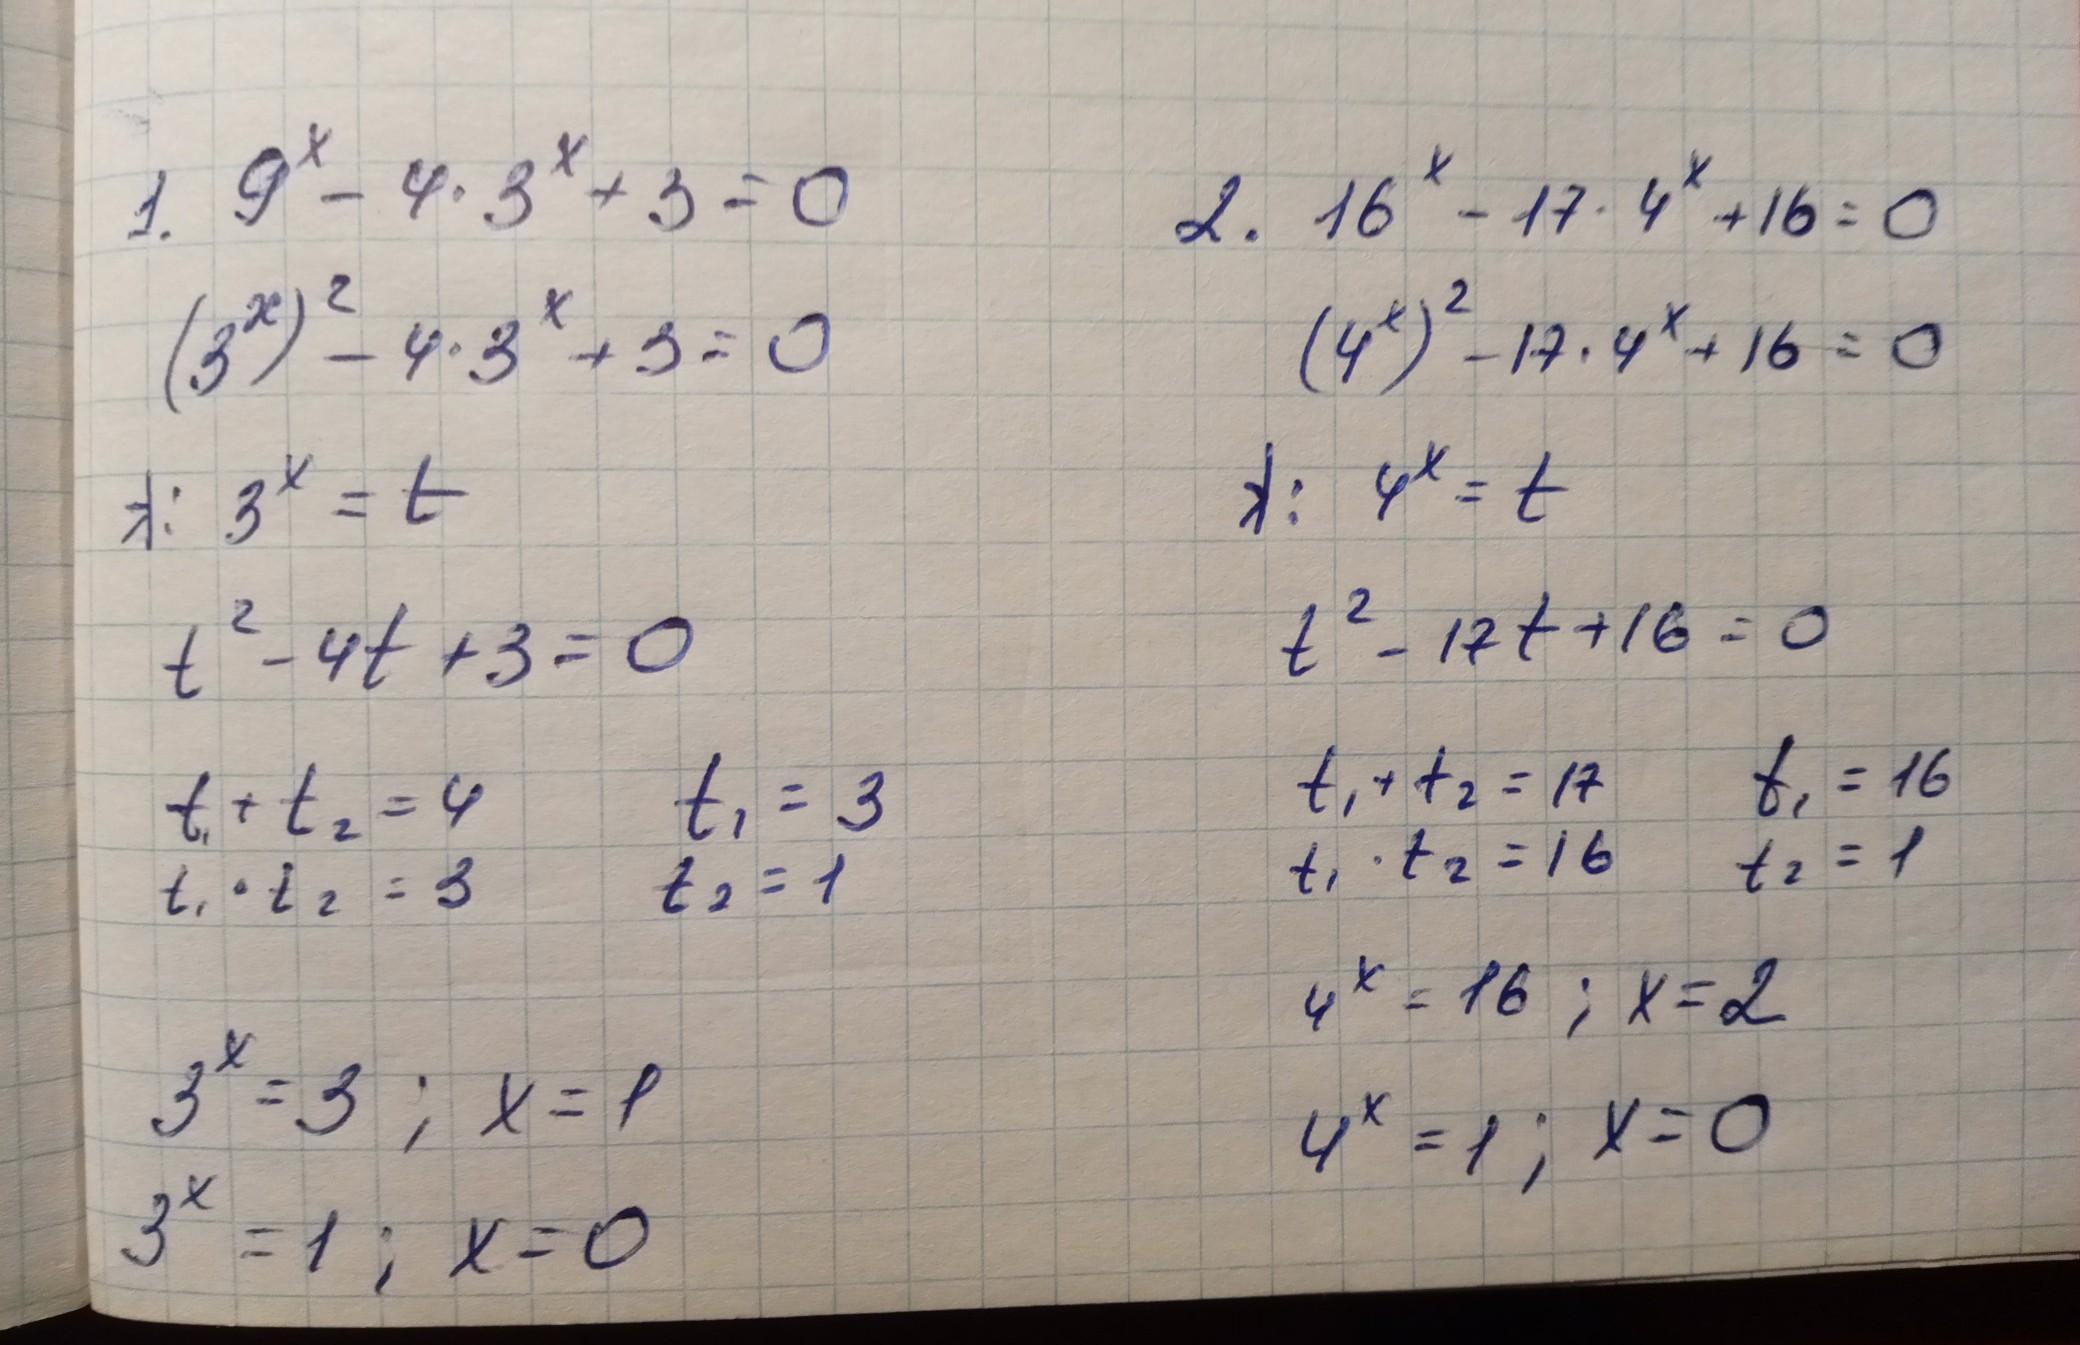 1. 9^x - 4 · 3^x + 3 = 0
(3^x)^2 - 4 · 3^x + 3 = 0
: 3^x = t
t^2 - 4t + 3 = 0
t₁ + t₂ = 4   t₁ = 3
t₁ · t₂ = 3   t₂ = 1
3^x = 3 ; x = 1
3^x = 1 ; x = 0
2. 16^x - 17 · 4^x + 16 = 0
(4^x)^2 - 17 · 4^x + 16 = 0
: 4^x = t
t^2 - 17t + 16 = 0
t₁ + t₂ = 17   t₁ = 16
t₁ · t₂ = 16   t₂ = 1
4^x = 16 ; x = 2
4^x = 1 ; x = 0